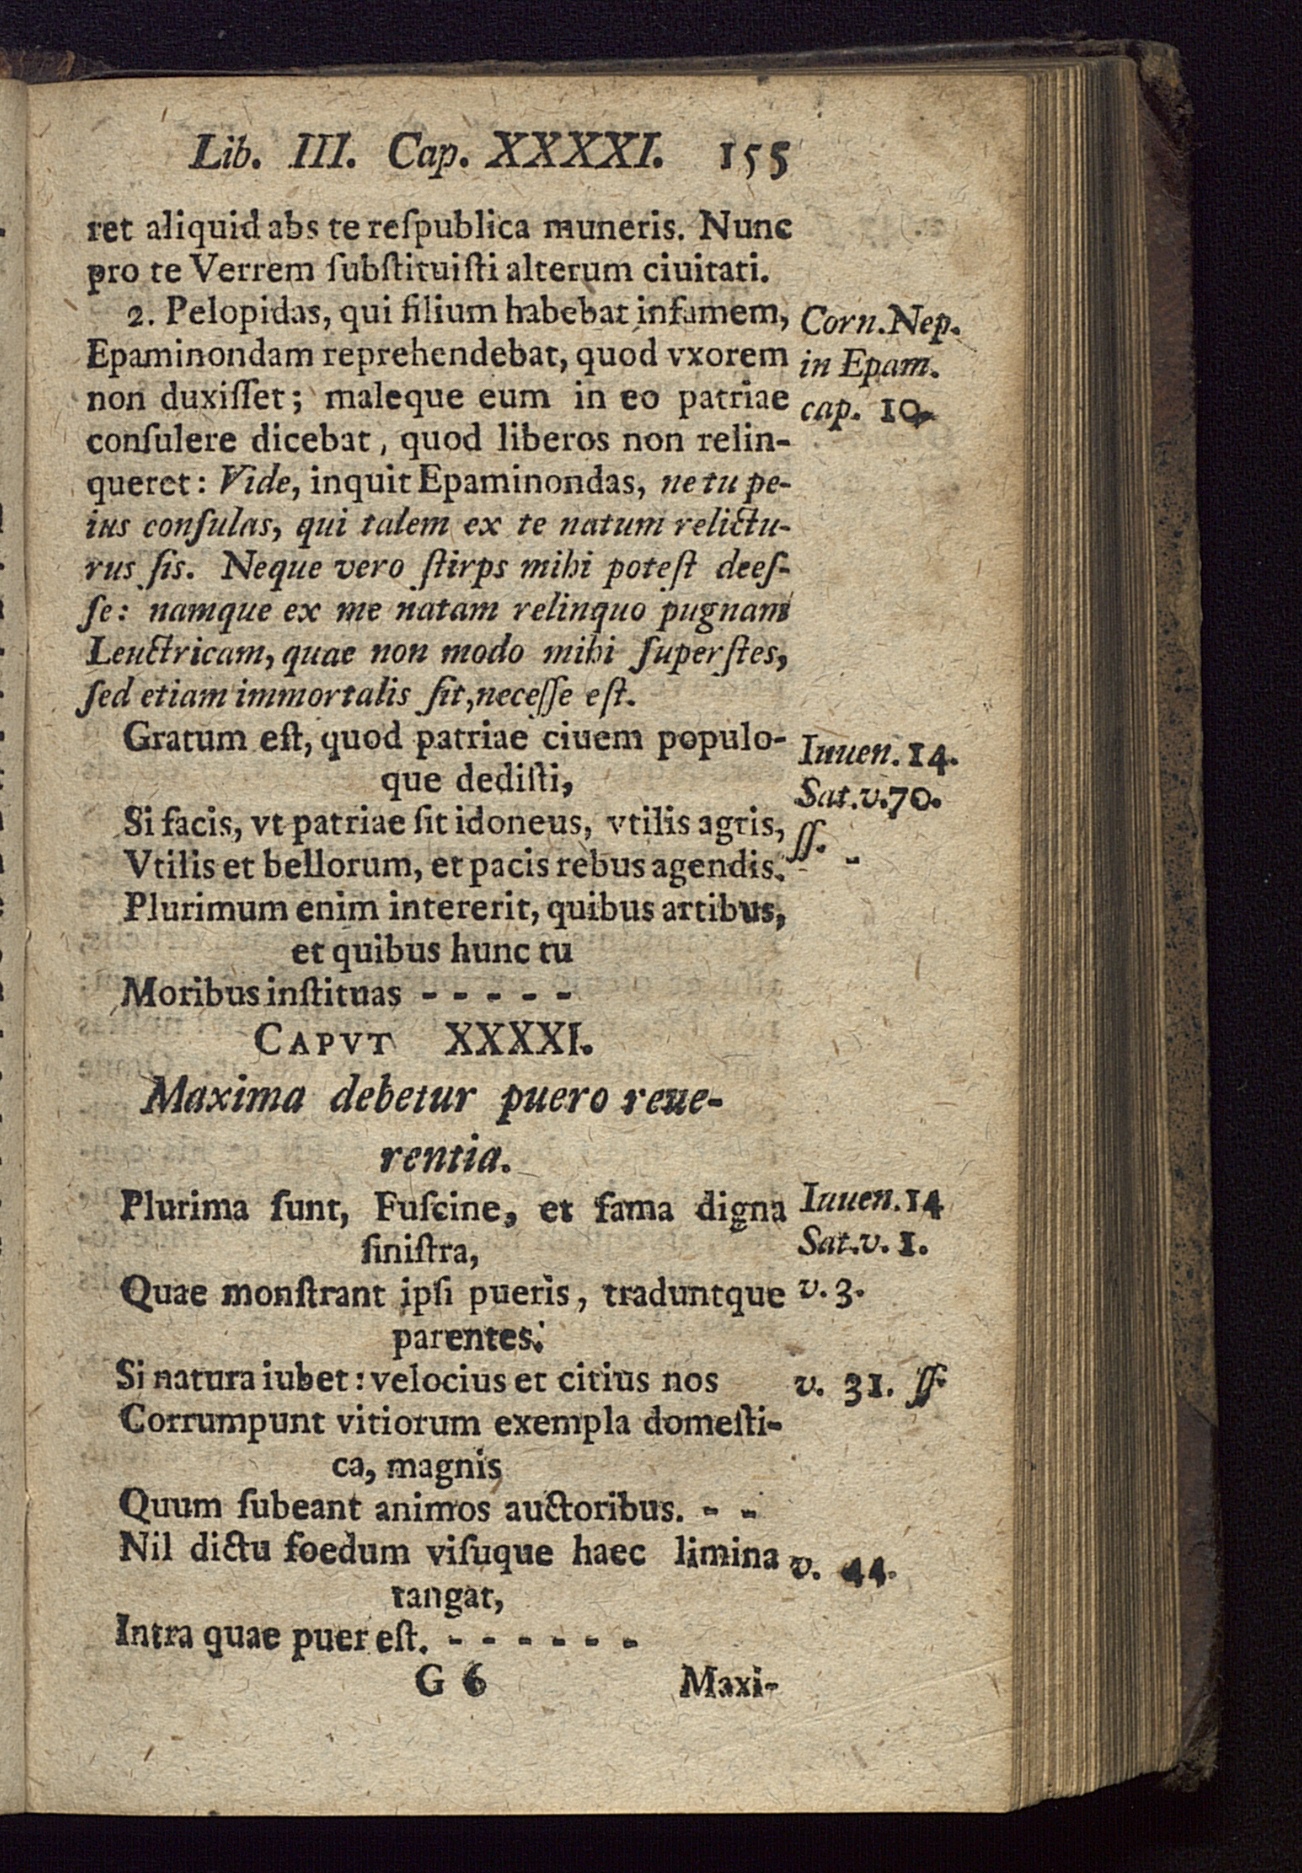 Lib. III. Cap. XXXXI. 155
ret aliquid abs te reſpublica muneris. Nunc
pro te Verrem ſubſtituiſti alterum ciuitati.
2. Pelopidas, qui filium habebat infamem,
Corn. Nep.
Epaminondam reprehendebat, quod vxorem
in Epam.
non duxiſſet; maleque eum in eo patriae
cap. 10.
conſulere dicebat, quod liberos non relin-
queret: Vide, inquit Epaminondas, ne tu pe-
ius conſulas, qui talem ex te natum relictu-
rus ſis. Neque vero ſtirps mihi poteſt deeſ-
ſe: namque ex me natam relinquo pugnam
Leuctricam, quae non modo mihi ſuperſtes,
ſed etiam immortalis ſit, neceſſe eſt.
Gratum eſt, quod patriae ciuem populo-
Iuuen. 14.
que dediſti,
Sat. v. 70.
Si facis, vt patriae ſit idoneus, vtilis agris,
ſſ.
Vtilis et bellorum, et pacis rebus agendis. - -
Plurimum enim intererit, quibus artibus,
et quibus hunc tu
Moribus inſtituas - - - - -
CAPVT XXXXI.
Maxima debetur puero reue-
rentia.
Plurima ſunt, Fuſcine, et fama digna
Iuuen. 14
ſiniſtra,
Sat. v. 1.
Quae monſtrant ipſi pueris, traduntque
v. 3.
parentes.
Si natura iubet: velocius et citius nos
v. 31. ſſ.
Corrumpunt vitiorum exempla domeſti-
ca, magnis
Quum ſubeant animos auctoribus. - -
Nil dictu foedum viſuque haec limina
v. 44.
tangat,
Intra quae puer eſt. - - - - - -
G 6 Maxi-